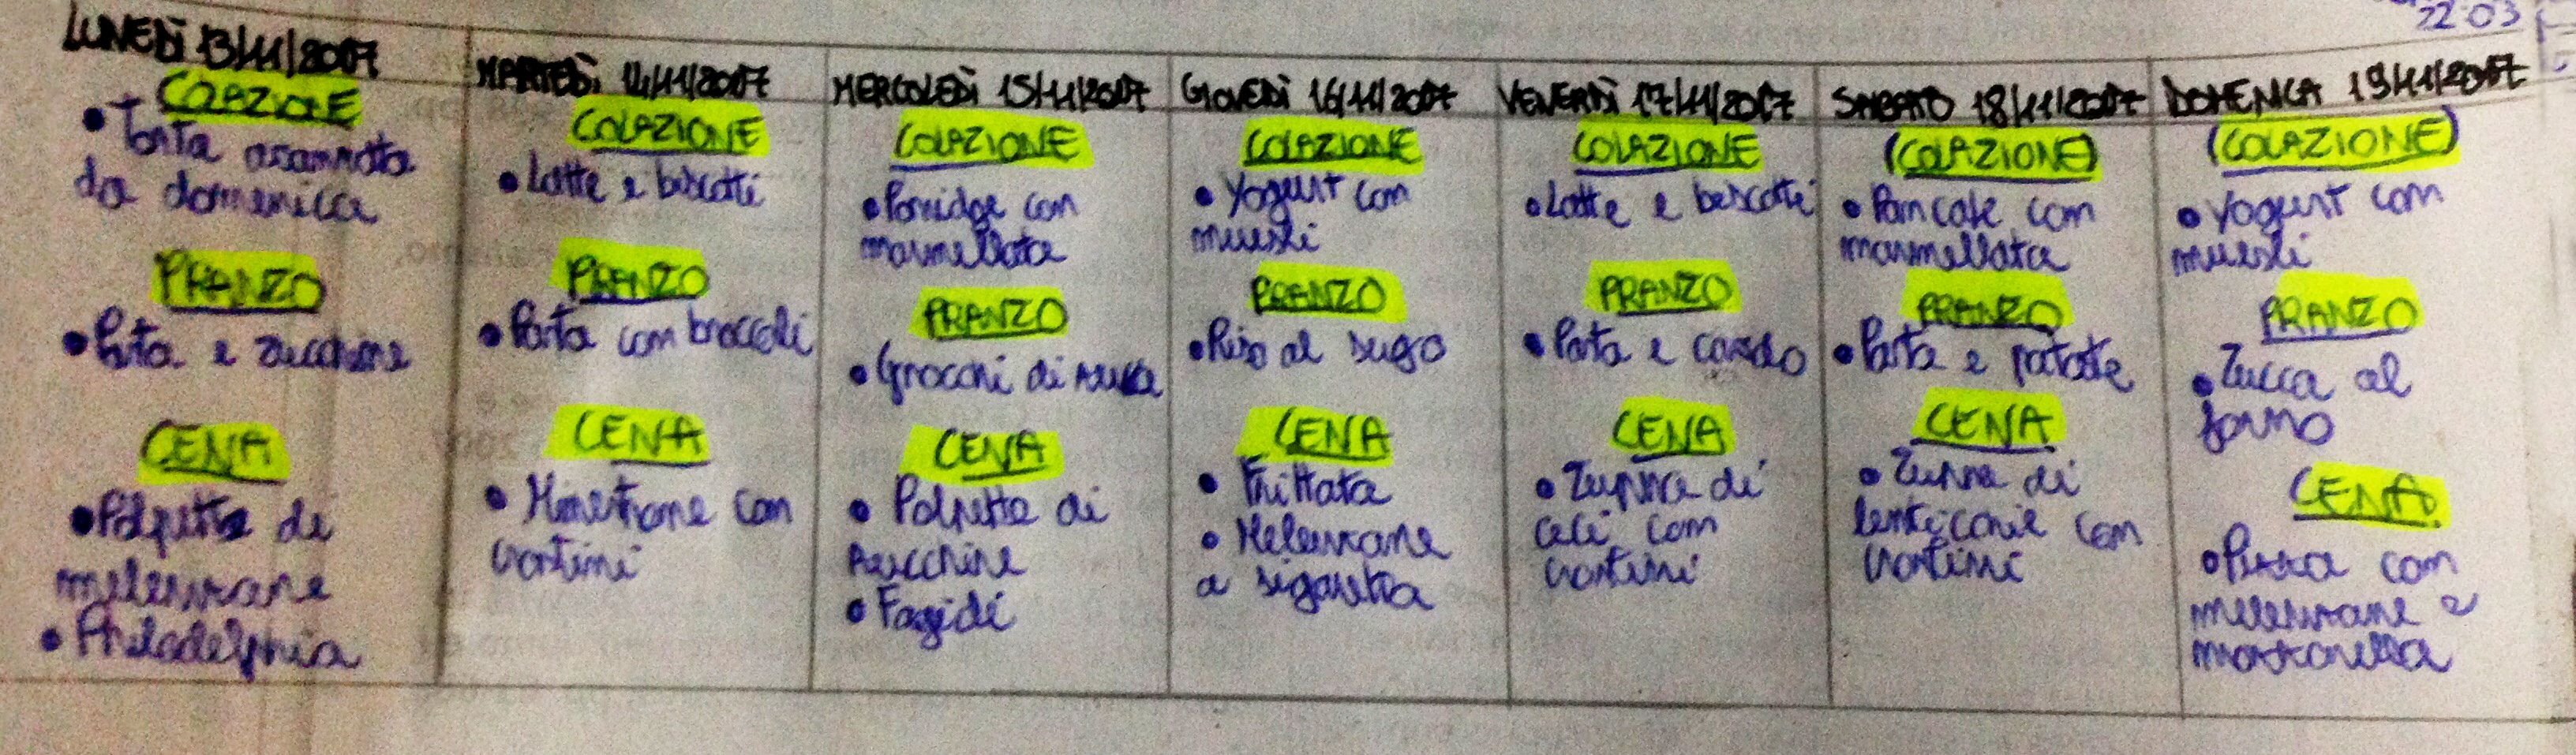 22:03
LUNEDÌ 13/11/2017
COLAZIONE
• Torta avanzata
da domenica
PRANZO
• Pasta e zucchine
CENA
• Polpette di
melenzane
• Philadelphia
MARTEDÌ 14/11/2017
COLAZIONE
• Latte e biscotti
PRANZO
• Pasta con broccoli
CENA
• Minestrone con
crostini
MERCOLEDÌ 15/11/2017
COLAZIONE
• Porridge con
marmellata
PRANZO
• Gnocchi di zucca
CENA
• Polpette di
zucchine
• Fagioli
GIOVEDÌ 16/11/2017
COLAZIONE
• Yogurt con
muesli
PRANZO
• Riso al sugo
CENA
• Frittata
• Melenzane
a sigaretta
VENERDÌ 17/11/2017
COLAZIONE
• Latte e biscotti
PRANZO
• Pasta e cardo
CENA
• Zuppa di
ceci con
crostini
SABATO 18/11/2017
(COLAZIONE)
• Pancake con
marmellata
PRANZO
• Pasta e patate
CENA
• Zuppa di
lenticchie con
crostini
DOMENICA 19/11/2017
(COLAZIONE)
• Yogurt con
muesli
PRANZO
• Zucca al
forno
CENA
• Pizza con
melenzane e
mozzarella